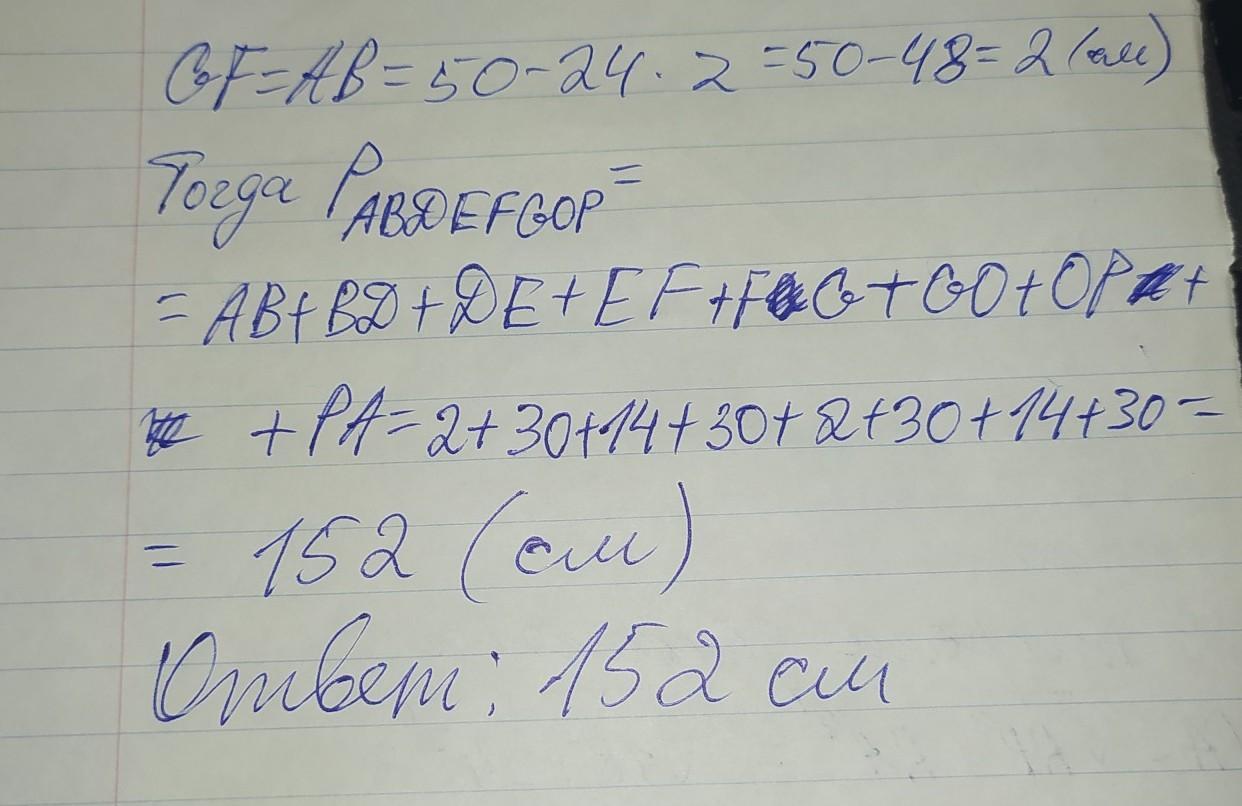 GF=AB=50-24·2=50-48=2(см)
Тогда P ABDEFGOP=
=AB+BD+DE+EF+FG+GO+OP+
+PA=2+30+14+30+2+30+14+30=
= 152 (см)
Ответ: 152 см